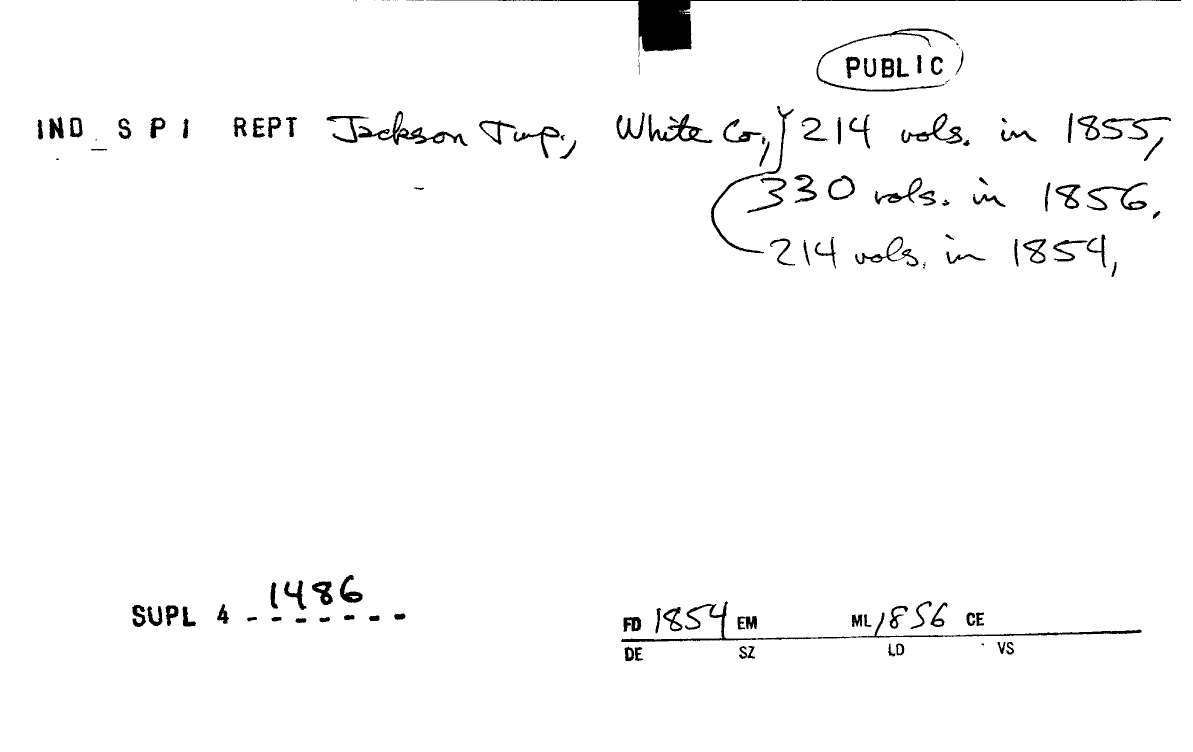 PUBLIC
IND S P I REPT Jackson Twp., White Co., 214 vols. in 1855,
330 vols. in 1856.
214 vols. in 1854,
1486
SUPL 4 - - - - - - -
FD 1854 EM ML 1856 CE
DE SZ LD VS